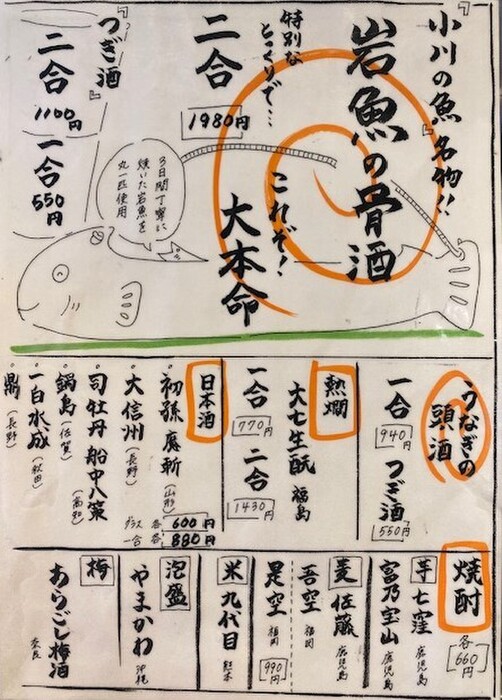 『小川の魚』名物!!
岩魚の骨酒
特別な
とっくりで…
二合
1980円
これぞ!
大本命
3日間丁寧に
焼いた岩魚を
丸一匹使用
『つぎ酒』
二合
1100円
一合
550円
うなぎの
頭酒
一合
940円
つぎ酒
550円
熱燗
大七生酛 福島
一合
770円
二合
1430円
日本酒
初孫 魔斬(山形)
大信州(長野)
司牡丹 船中八策(高知)
鍋島(佐賀)
一白水成(秋田)
鼎(長野)
グラス 各 600円
一合 各 880円
焼酎
各660円
芋 七窪 鹿児島
富乃宝山 鹿児島
麦 佐藤 鹿児島
吾空 福岡
是空 福岡
990円
米 九代目 熊本
泡盛
やまかわ 沖縄
梅
あらごし梅酒 奈良